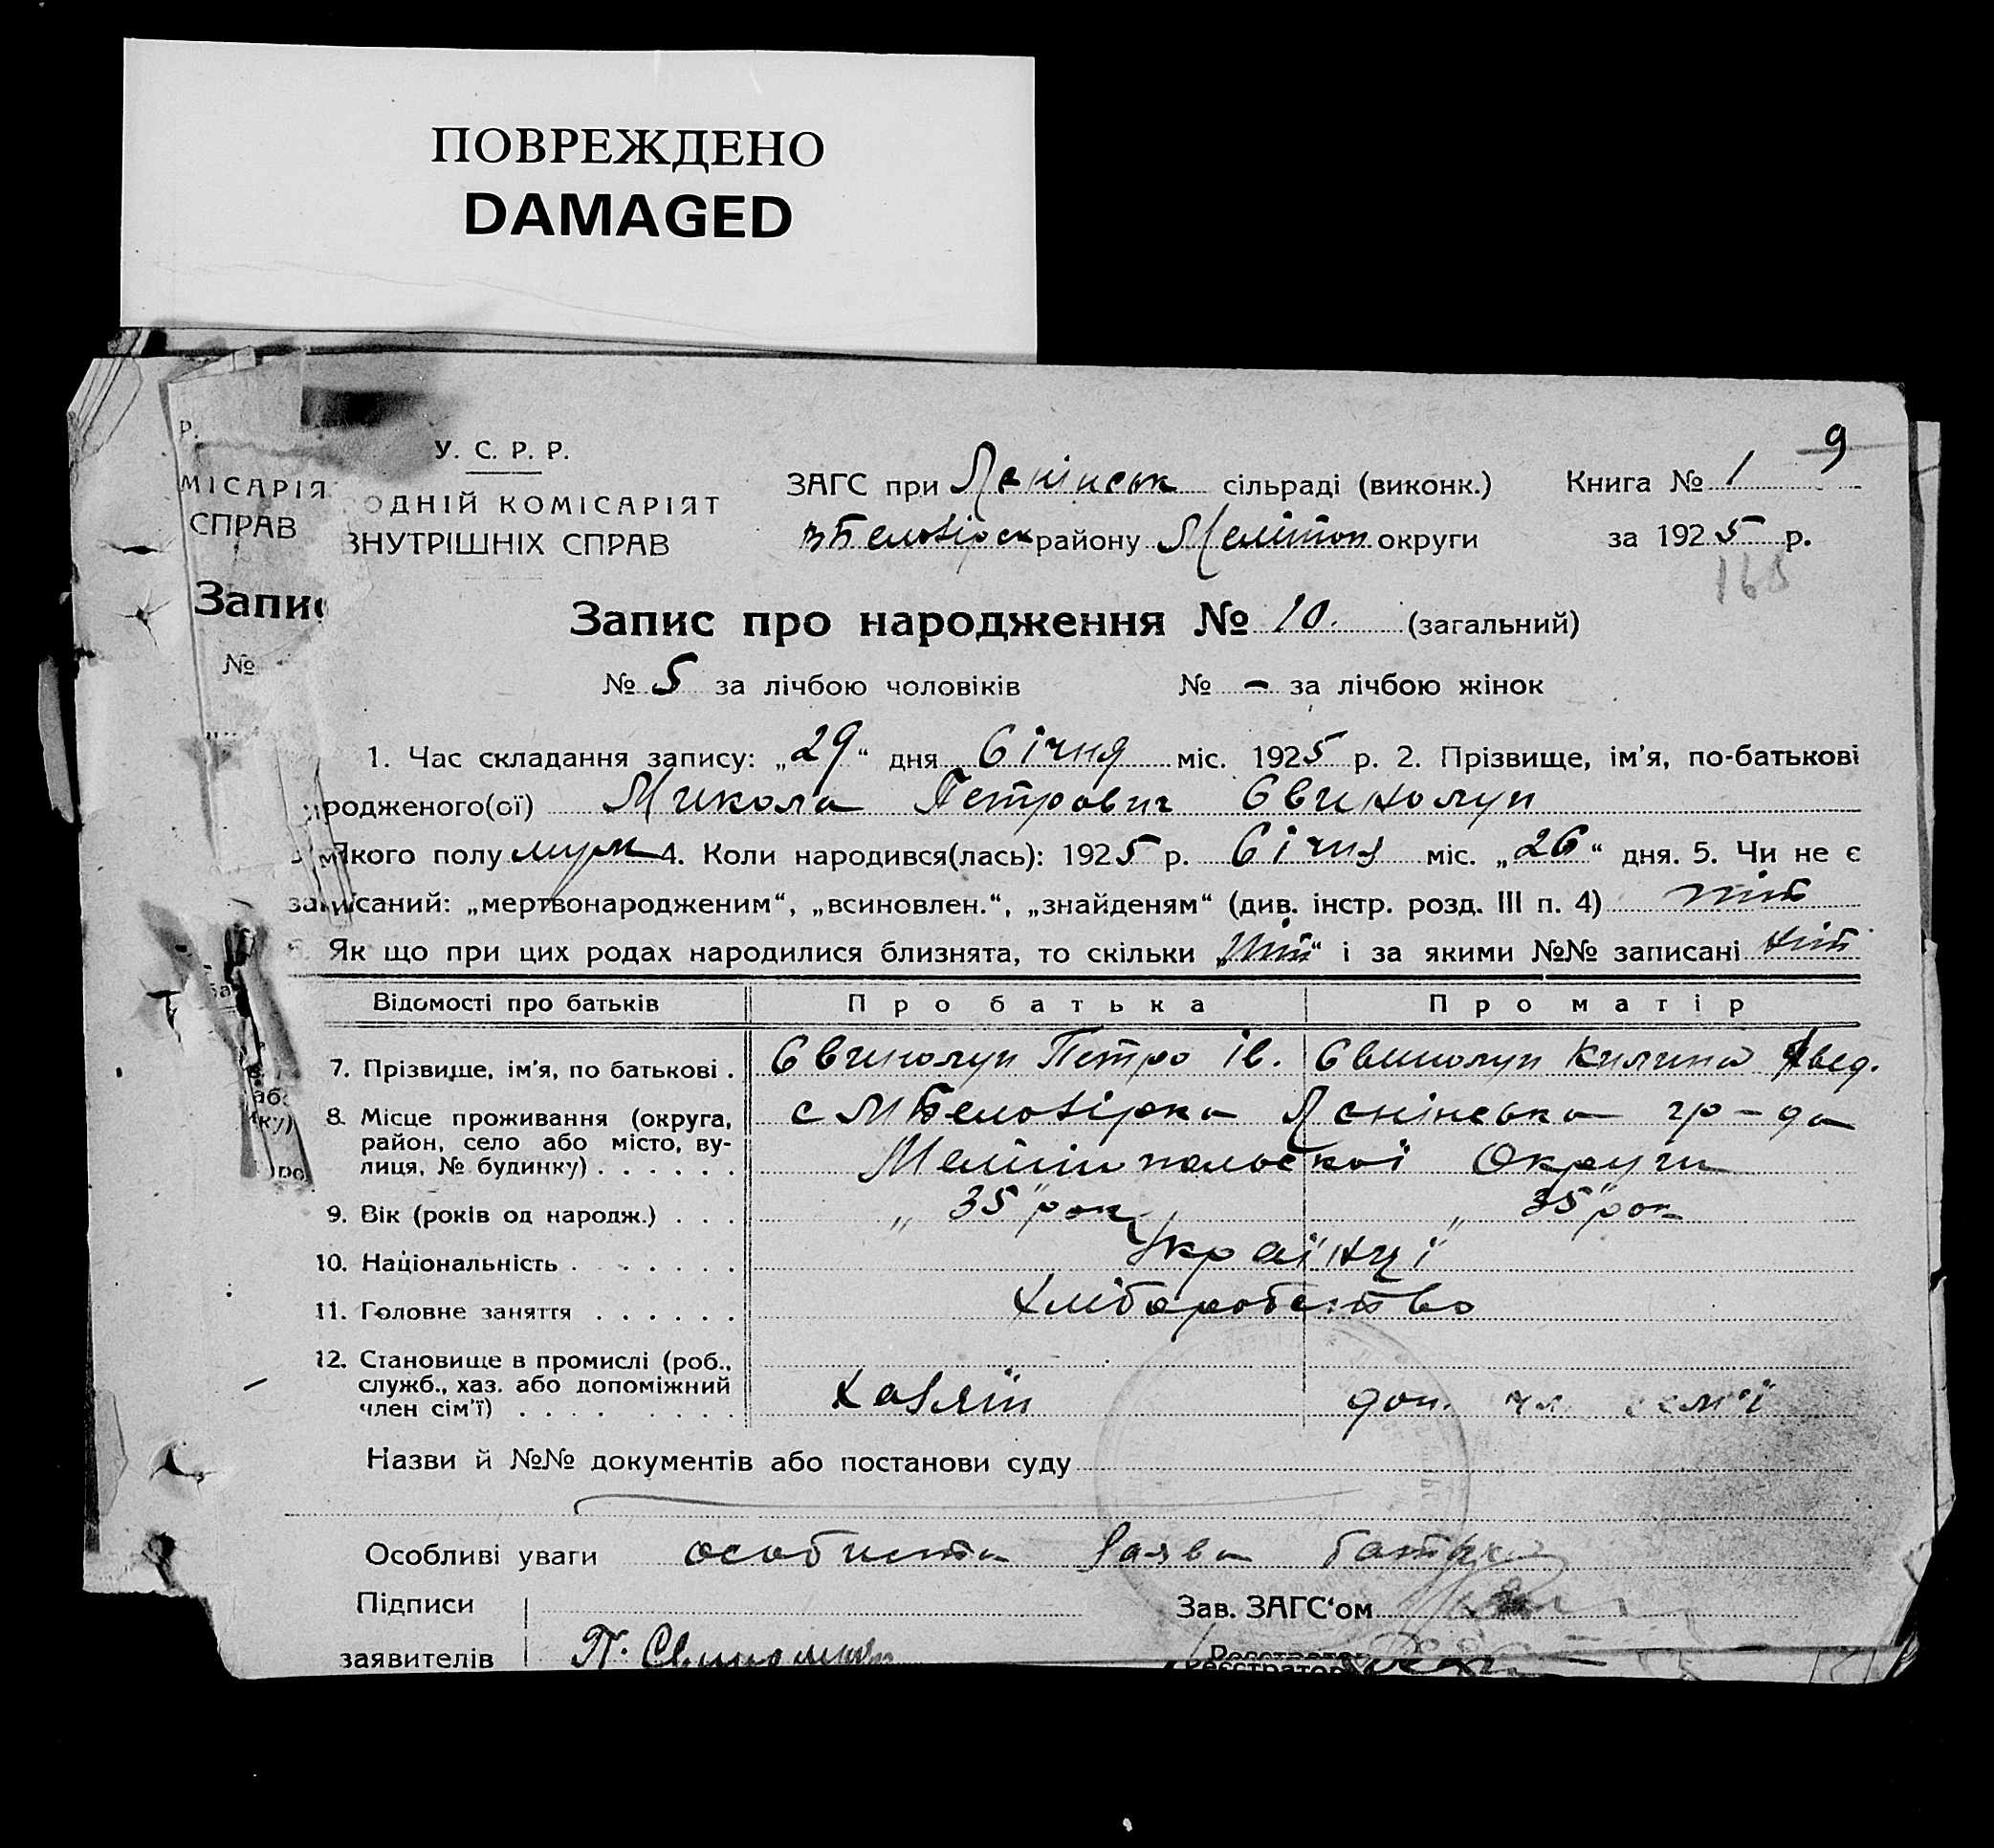 ПОВРЕЖДЕНО
DAMAGED
9
Р.
У. С. Р. Р.
МІСАРІЯ
ОДНІЙ КОМІСАРІЯТ
СПРАВ
ВНУТРІШНІХ СПРАВ
ЗАГС при Ленінськ сільраді (виконк.)
Книга № 1
району Меліто́п округи
за 1925 р.
168
Запис
Запис про народження № 10. (загальний)
№
№ 5 за лічбою чоловіків № – за лічбою жінок
1. Час складання запису: „29“ дня січня міс. 1925 р. 2. Прізвище, ім'я, по-батькові
родженого(ої) Микола Петрович Свинолуп
Якого полу муж 4. Коли народився(лась): 1925 р. січня міс. „26“ дня. 5. Чи не є
записаний: „мертвонародженим“, „всиновлен.“, „знайденям“ (див. інстр. розд. III п. 4) ніт
6. Як що при цих родах народилися близнята, то скільки „ніт“ і за якими №№ записані ніт
Відомості про батьків Про батька Про матір
7. Прізвище, ім'я, по батькові . Свинолуп Петро Ів. Свинолуп Килина
8. Місце проживання (округа, район, село або місто, вулиця, № будинку) . . . . . . с М Белозірка Ленінська гр-да
Мелітипольскої Округи
9. Вік (років од народж.) . . . „ 35 " рок „ 35 " рок
10. Національність . . . . . . . Українці
11. Головне заняття . . . . . . Хліборобство
12. Становище в промислі (роб.,
служб., хаз. або допоміжний
член сім'ї) . . . . . . . . Хазяїн доп. чл. сем'ї
Назви й №№ документів або постанови суду
Особливі уваги особиста заява батька
Підписи
Зав. ЗАГС'ом
заявителів П. Свинолуп
Реєстратор